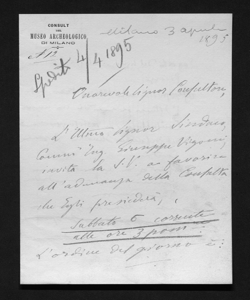 CONSULTA
DEL
MUSEO ARCHEOLOGICO
DI MILANO
Milano 3 aprile
1895
Spedita 4/4 1895
Onorevole Signor Consultore,
L'Illmo Signor Sindaco,
Comm. Ing. Giuseppe Vigoni,
invita la S. V. a favorire
all'adunanza della Consulta
che Egli presiederà,
Sabato 6 corrente
alle ore 2 pom.
L'ordine del giorno è: